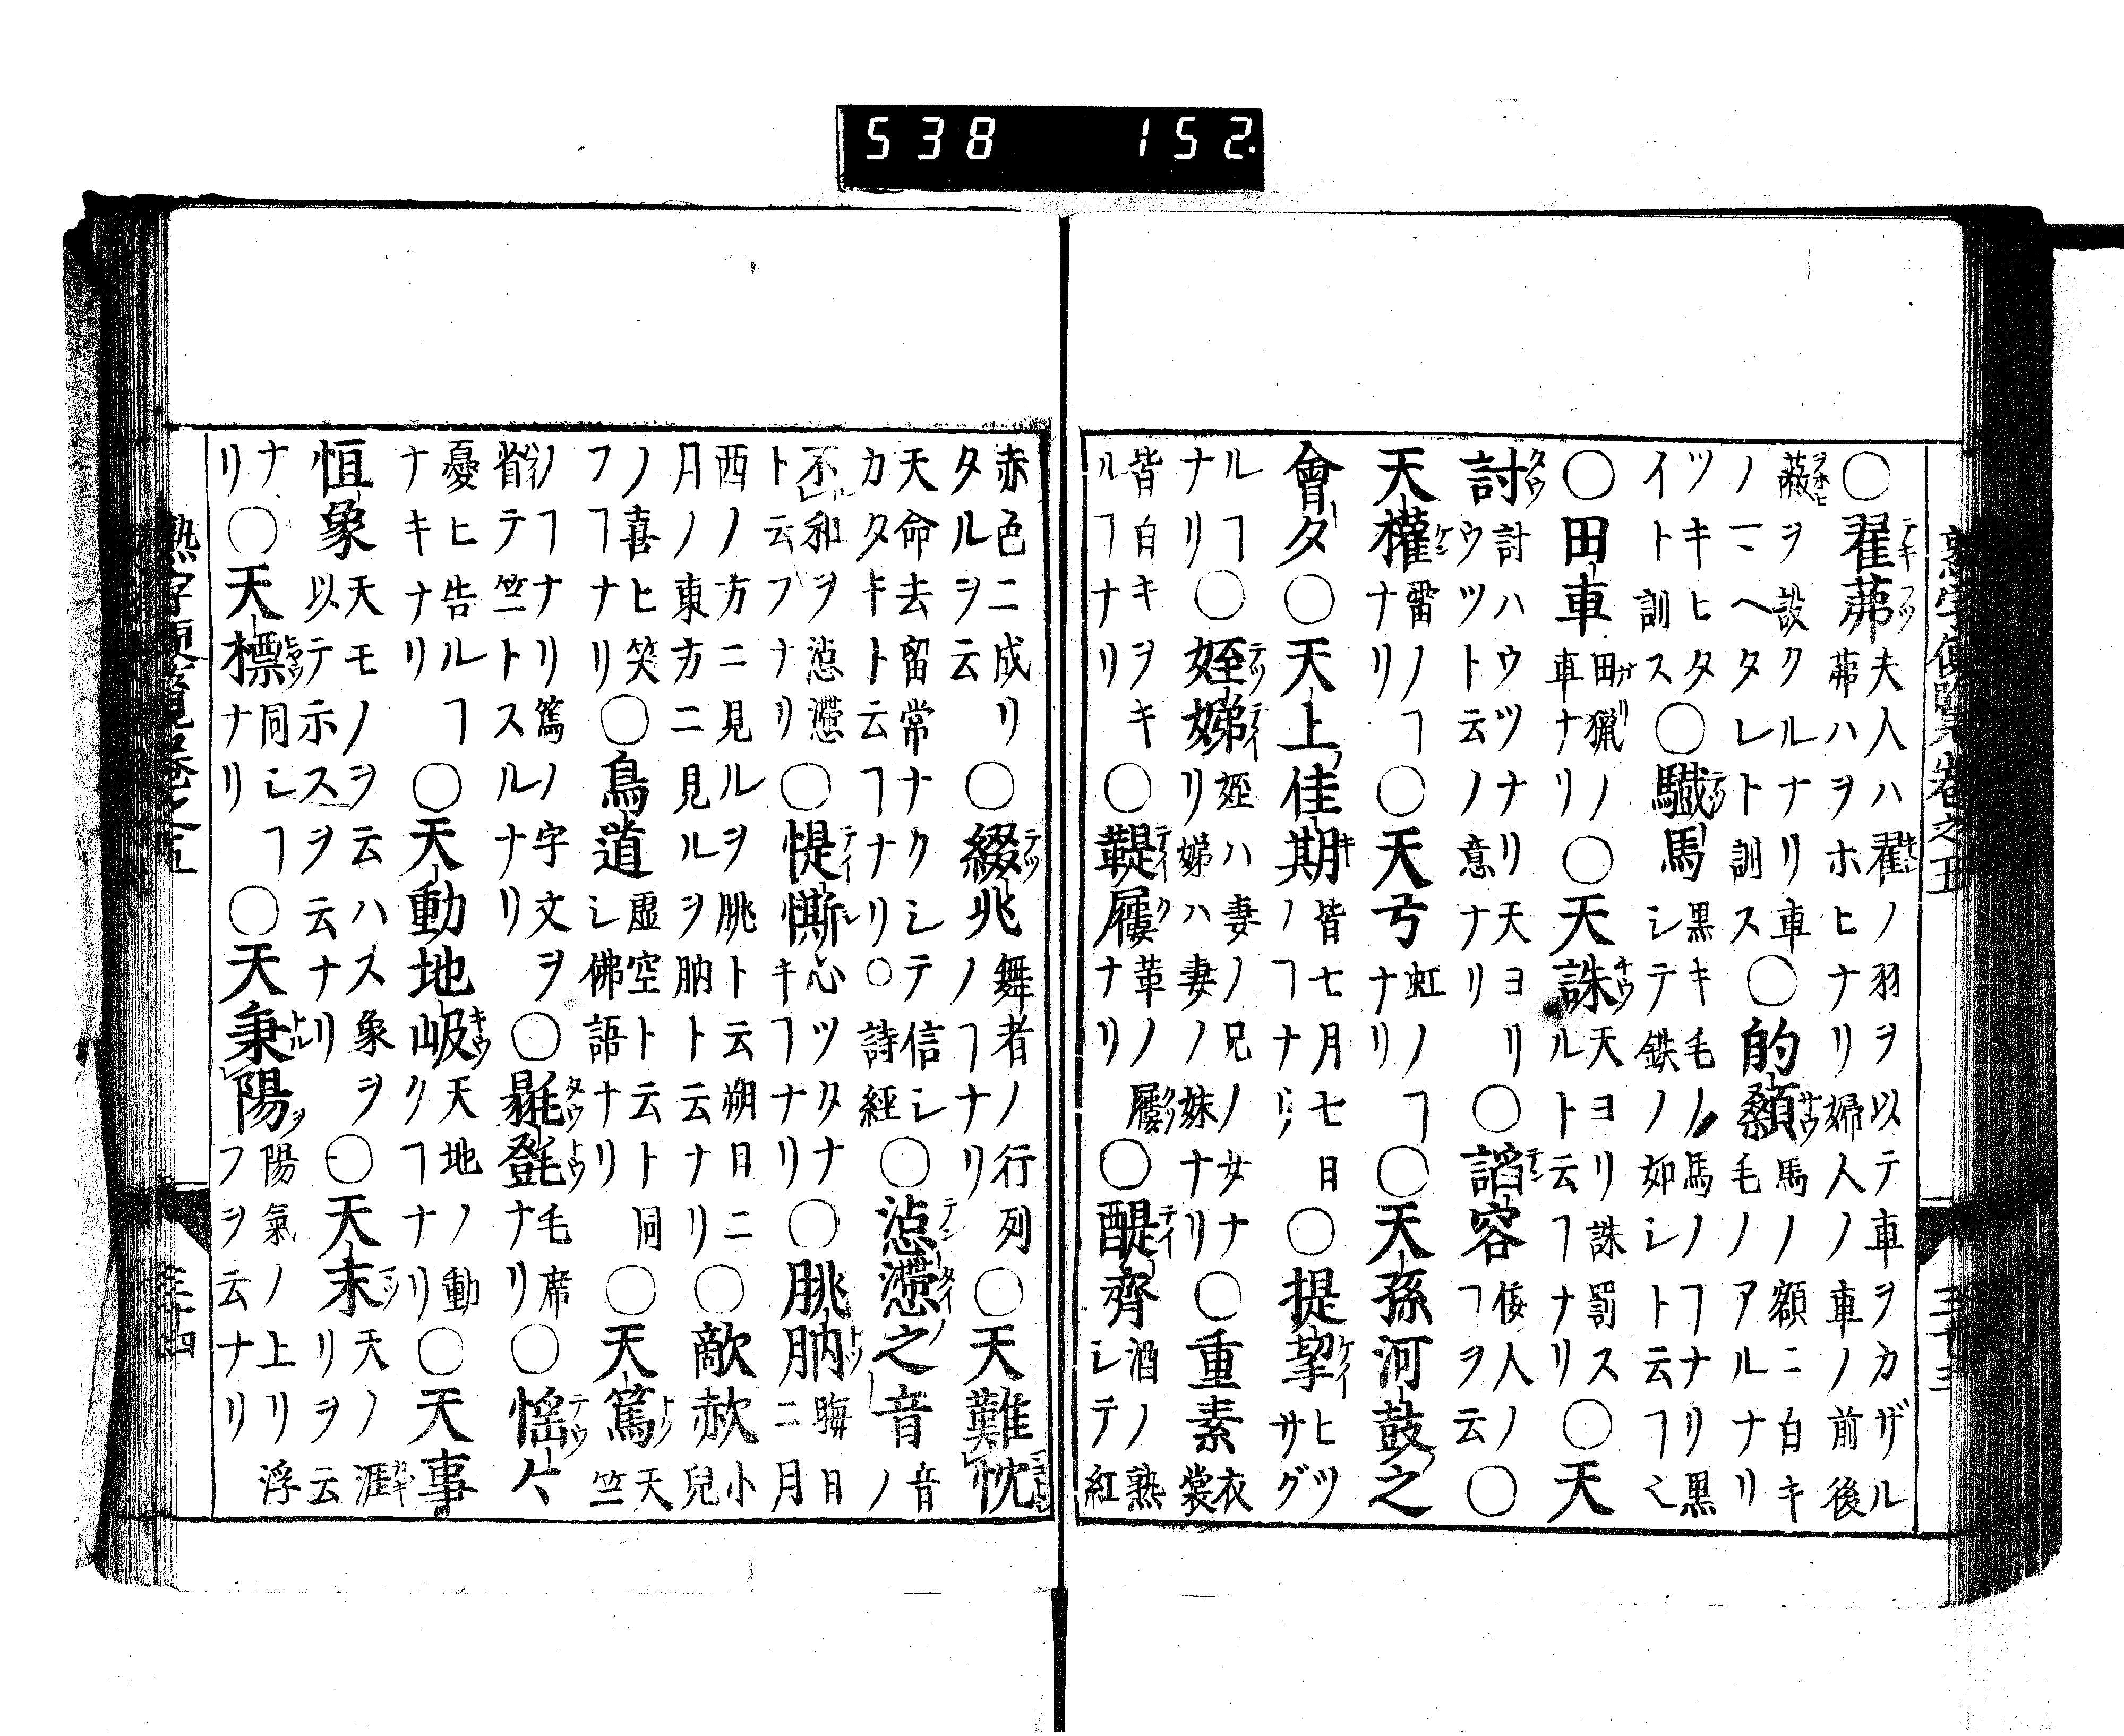 538 152.
熟字便覽卷之五 三十三
○翟茀夫人ハ翟ノ羽ヲ以テ車ヲカザル茀ハヲホヒナリ婦人ノ車ノ前後
蔽ヲ設クルナリ車ノマヘタレト訓ス○的顙馬ノ額ニ白キ毛ノアルナリ
ツキヒタイト訓ス○驖馬黒キ毛ノ馬ノヿナリ黒シテ鉄ノ如シト云ヿ也
○田車田猟ノ車ナリ○天誅天ヨリ誅罰スルト云ヿナリ○天
討討ハウツナリ天ヨリウツト云ノ意ナリ○謟容倭人ノヿヲ云○
天權雷ノヿナリ○天弓虹ノヿナリ○天孫河鼓之
會夕○天上佳期皆七月七日ノヿナリ○提挈ヒツサグ
ルヿナリ○姪娣姪ハ妻ノ兄ノ女ナリ娣ハ妻ノ妹ナリ○重素衣裳
皆白キヲキルヿナリ○鞮屨革ノ屨ナリ○醍齊酒ノ熟シテ紅
赤色ニ成リタルヲ云○綴兆舞者ノ行列ノヿナリ○天難忱
天命去留常ナクシテ信シカタキト云ヿナリ○詩經○惉懘之音音ノ
不和ヲ惉懘ト云フナリ○惿㒋心ツタナキヿナリ○朓朒晦日ニ月
西ノ方ニ見ルヲ朓ト云朔日ニ月ノ東方ニ見ルヲ朒ト云ナリ○歒赥小兒
ノ喜ヒ笑フヿナリ○鳥道虚空ト云ト同シ佛語ナリ○天篤天竺
ノヿナリ篤ノ字文ヲ省テ竺トスルナリ○毾㲪毛席ナリ○愮々
憂ヒ告ルヿナキナリ○天動地岋天地ノ動クヿナリ○天事
恒象天モノヲ云ハス象ヲ以テ示スヲ云ナリ○天末天ノ涯リヲ云
ナリ○天標同シヿナリ○天秉陽陽氣ノ上リ浮フヲ云ナリ
熟字便覽卷之五 三十四